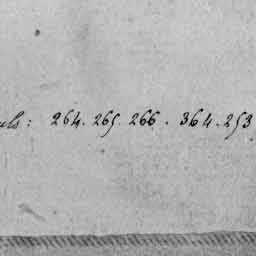 264. 265. 266. 364. 253